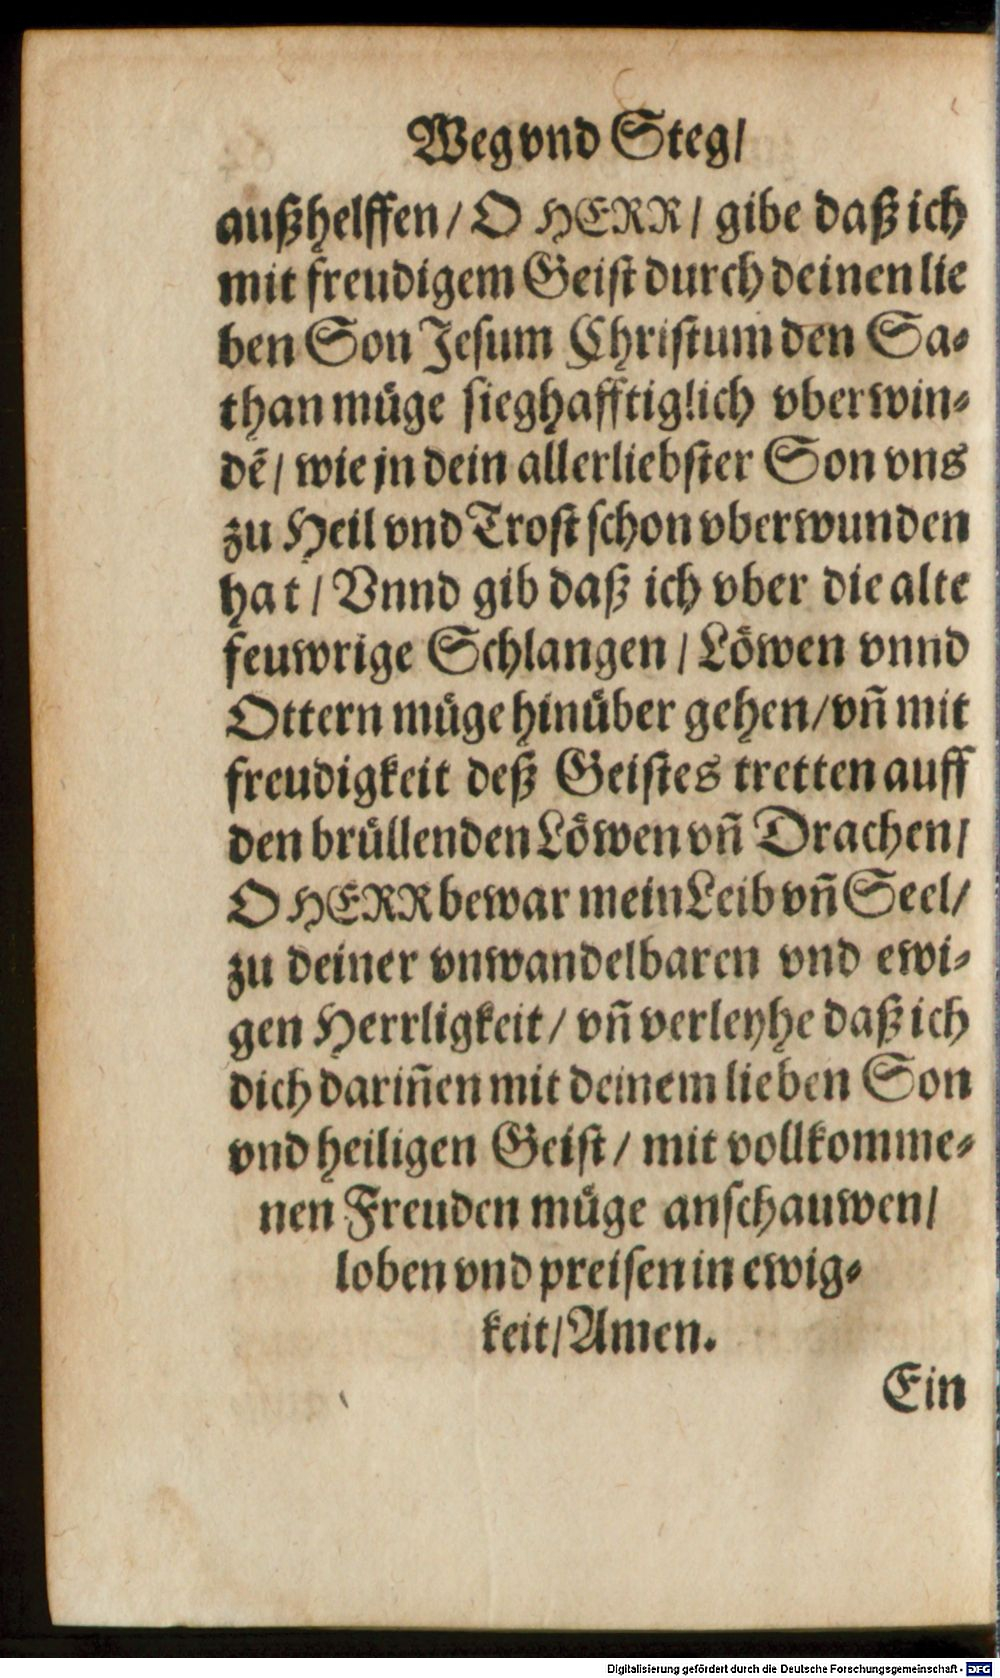 Weg vnd Steg/
außhelffen/ O HERR/ gibe daß ich
mit freudigem Geist durch deinen lie
ben Son Jesum Christum den Sa-
than müge sieghafftiglich vberwin-
dẽ/ wie jn dein allerliebster Son vns
zu Heil vnd Trost schon vberwunden
hat/ Vnnd gib daß ich vber die alte
feuwrige Schlangen/ Löwen vnnd
Ottern müge hinüber gehen/ vñ mit
freudigkeit deß Geistes tretten auff
den brüllenden Löwen vñ Drachen/
O HERR bewar mein Leib vñ Seel/
zu deiner vnwandelbaren vnd ewi-
gen Herrligkeit/ vñ verleyhe daß ich
dich dariñen mit deinem lieben Son
vnd heiligen Geist/ mit vollkomme-
nen Freuden müge anschauwen/
loben vnd preisen in ewig-
keit/ Amen.
Ein
Digitalisierung gefördert durch die Deutsche Forschungsgemeinschaft - DFG